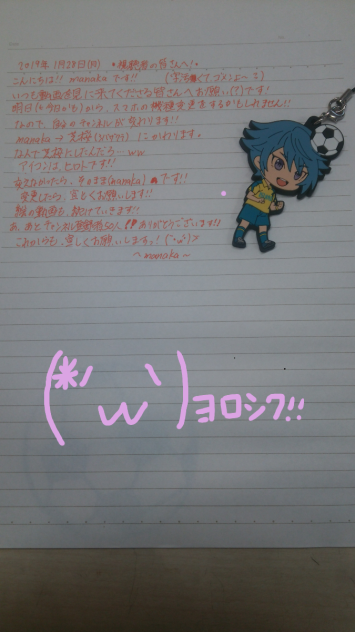 2019年 1月28日(月) *視聴者の皆さんへ!*
こんにちは!! manakaです!! (字汚くてゴメンよー ミ)
いつも動画を見に来てくださる皆さんへお願い(?)です!
明日(も今日かも)から、スマホの機種変更をするかもしれません!!
なので、自分のチャンネル名が変わります!!
manaka → 芝桜(シバザクラ)にかわります。
なんで芝桜にしたんだろ…ww
アイコンは、ヒロトです!!
変えなかったら、そのまま(manaka)です!!
変更したら、宜しくお願いします!!
の動画も、続けていきます!!
あ、あとチャンネル登録者50人 ありがとうございます!!
これからも、宜しくお願いします。!(^ω^)
〜manaka〜
(*´ω`)ヨロシク!!